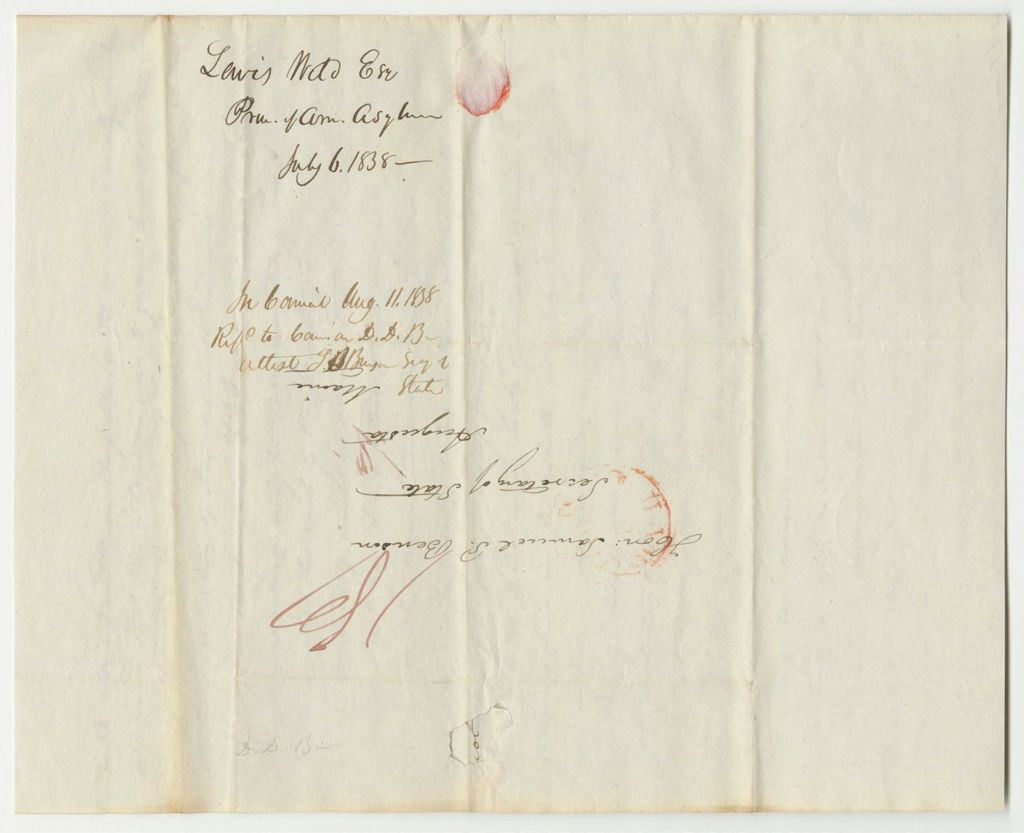 Lewis Weld Esq
Prin. of Am. Asylum
July 6. 1838
In Council Aug. 11. 1838
Refd to Com. on D. D. B
attest S P Benson Secy of
State
Hon: Samuel P. Benson
Secretary of State
Augusta
Maine
D. D. B